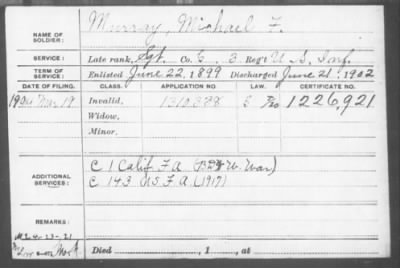 NAME OF SOLDIER: Murray, Michael F.
SERVICE: Late rank, Sgt. Co. G, 3 Reg't U.S. Inf.
TERM OF SERVICE: Enlisted June 22, 1899 Discharged June 21, 1902
DATE OF FILING. CLASS. APPLICATION NO. LAW. CERTIFICATE NO.
1904 Mar 19 Invalid, 1310,888 1,226,921
Widow,
Minor,
ADDITIONAL SERVICES: C 1 Calif. F.A. W. War)
C 143 US F.A. (1917)
REMARKS:
Died , 1 , at